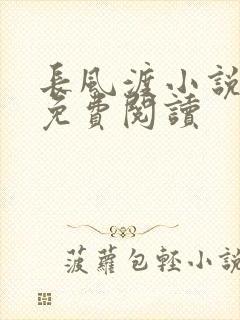 長風渡小說
免費閱讀
菠蘿包輕小說